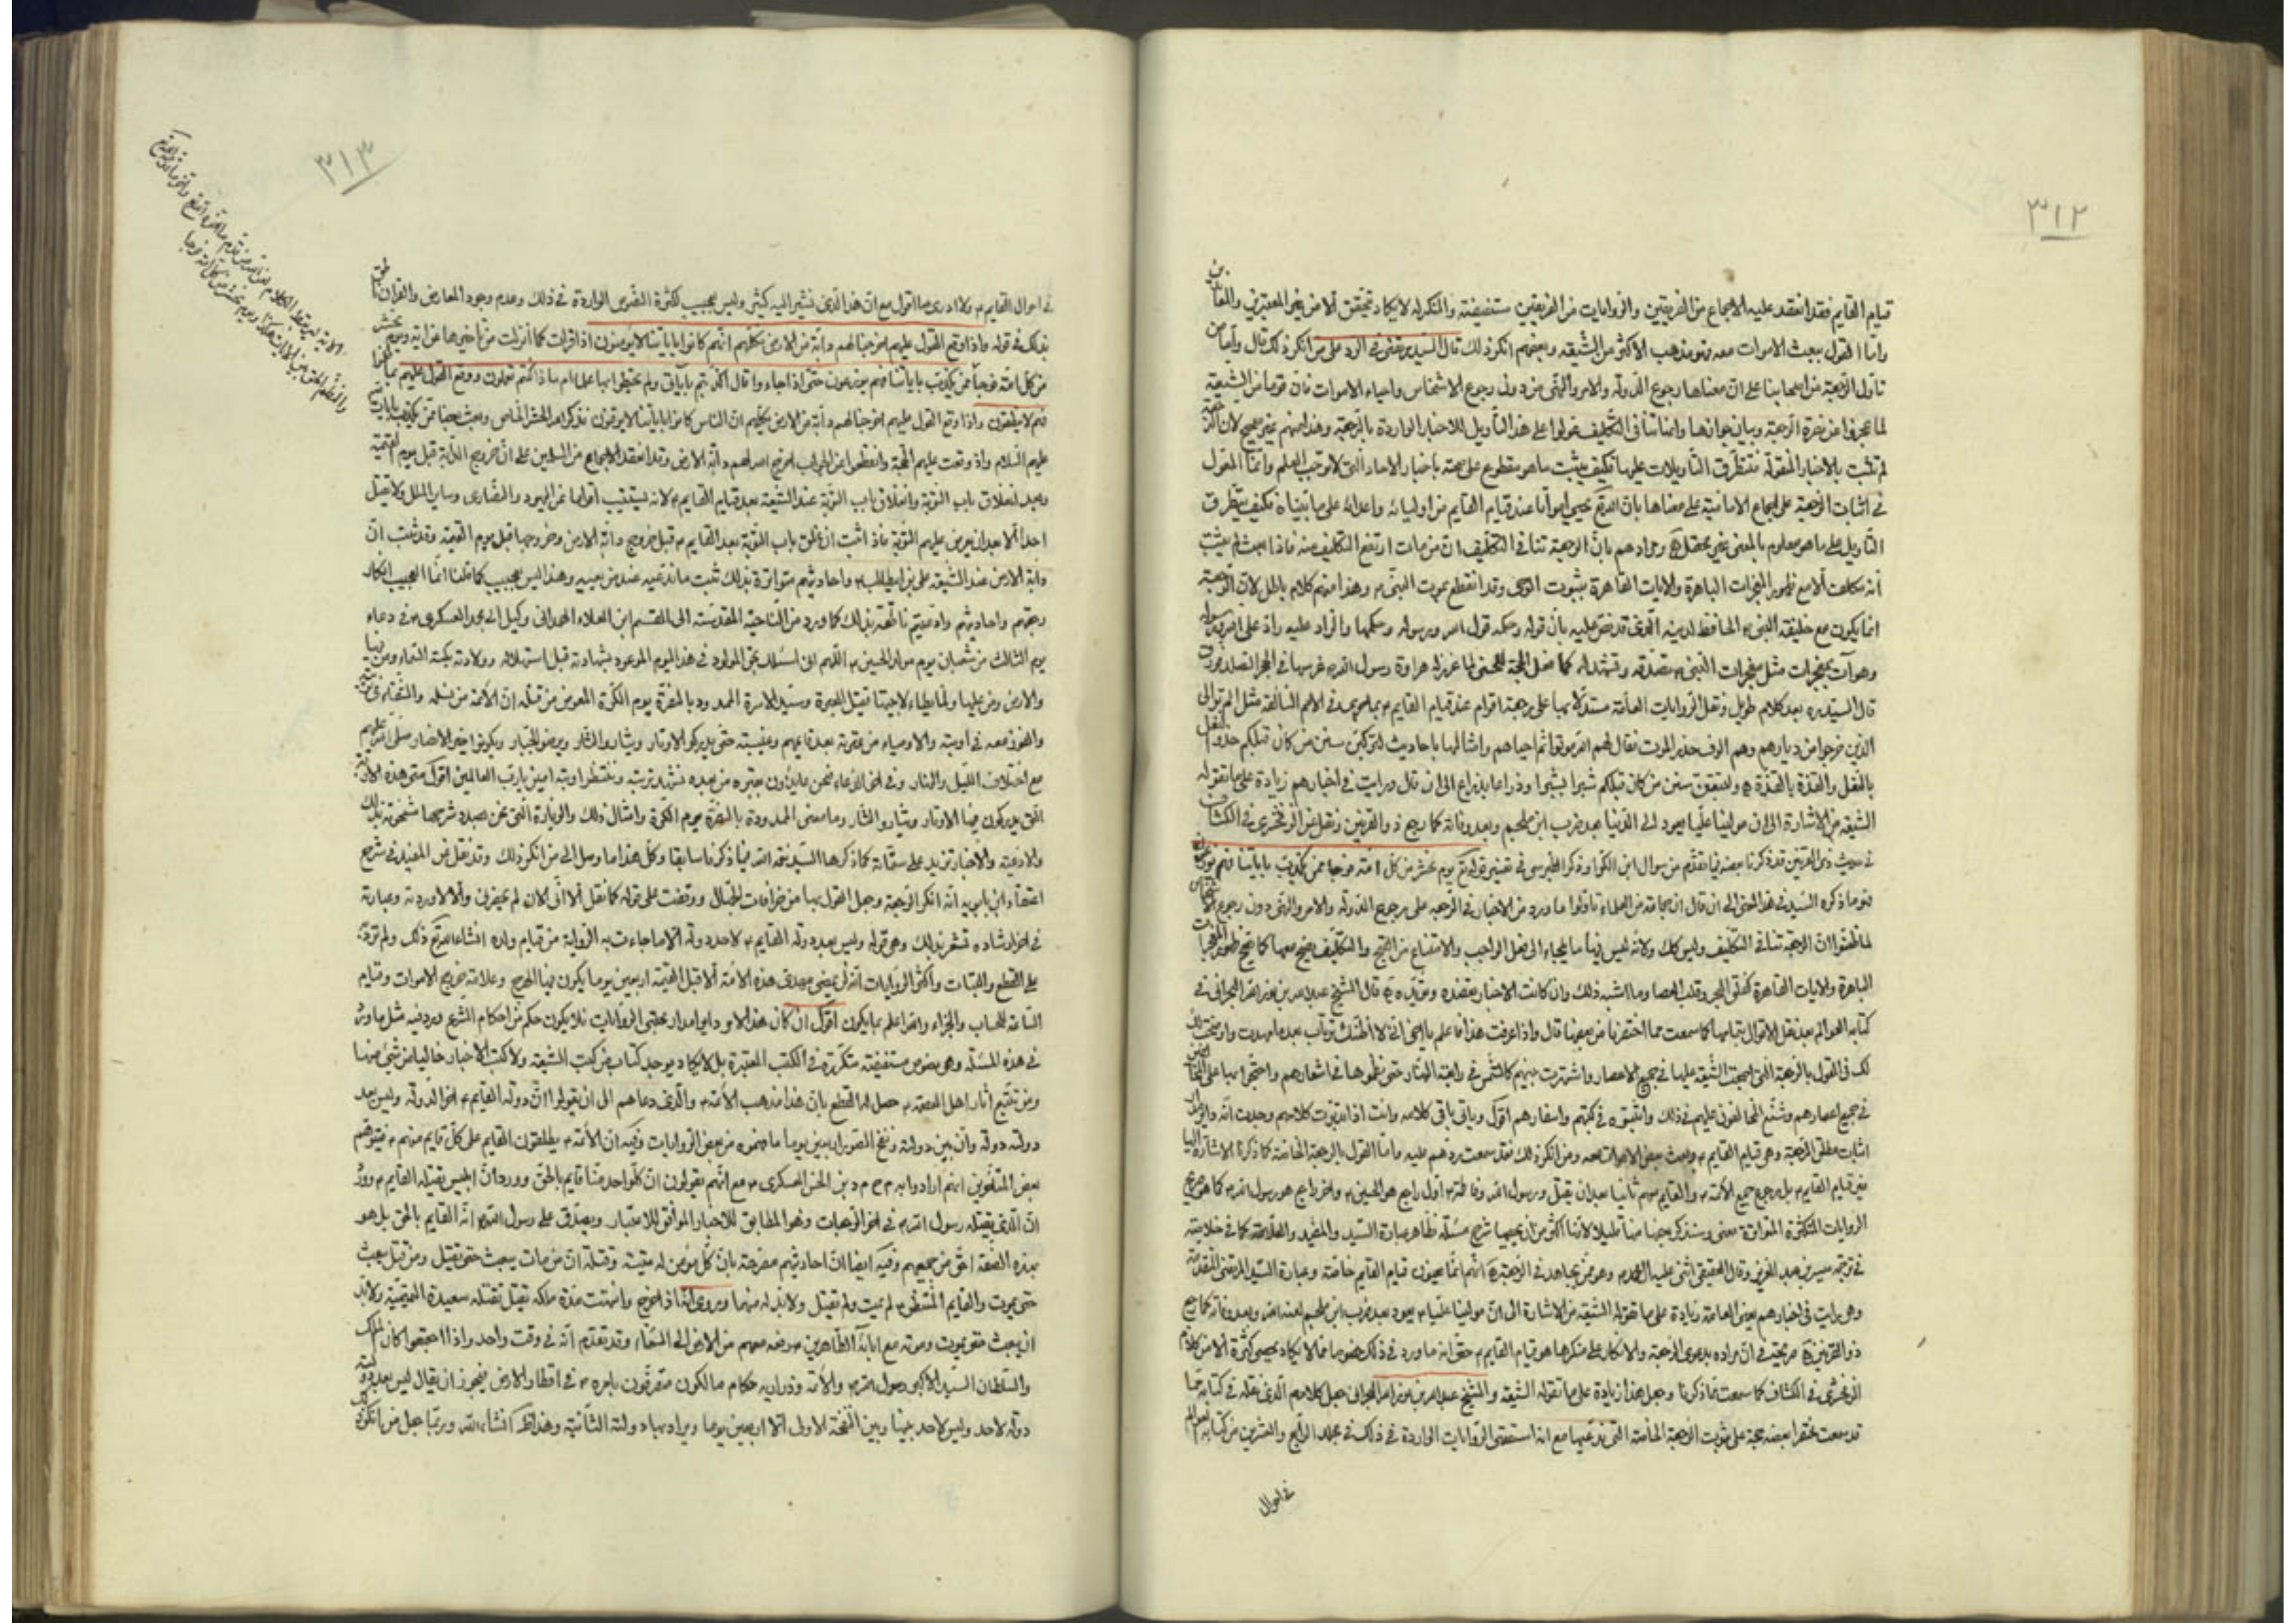 ٣١٢
قيام القايم فقد انعقد عليه الاجماع من الفريقين والروايات من الفريقين مستفيضة والمنكر له لا يكاد يتحقق الا من غير المعتبرين
واما القول ببعث الاموات معه فهو مذهب الاكثر من الشيعه وبعضهم انكر ذلك قال السيد مرتضى في الرد على من انكر ذلك قال واما من
تاول الرجعة من اصحابنا على ان معناها رجوع الدولة والامر والنهى من دون رجوع الاشخاص واحياء الاموات فان قوما من الشيعة
لما عجزوا عن نصرة الرجعة وبيان جوازها وانها تنافى التكليف عولوا على هذا التأويل للاخبار الواردة بالرجعة وهذا منهم غير صحيح لان الرجعة
لم تثبت بالاخبار المنقولة فتطرق التأويلات عليها فكيف يثبت ما هو مقطوع على صحته باخبار الاحاد التى لا توجب العلم وانما المعول
في اثبات الرجعة على اجماع الامامية على معناها بان الله تع يحيى امواتا عند قيام القايم من اوليائه واعدائه على ما بيناه فكيف يتطرق
التأويل على ما هو معلوم بالمعنى غير محتمل ومرادهم بان الرجعة تنافى التكليف ان من مات ارتفع التكليف عنه فاذا بعث لم يثبت
انه مكلف الا مع ظهور المعجزات الباهرة والايات القاهرة بثبوت الوحى وقد انقطع بموت النبى وهذا منهم كلام باطل لان الرجعة
انما يكون مع خليفة النبى الحافظ لدينه الذى قد نص عليه بان قوله وحكمه قول الله ورسوله وحكمهما والراد عليه راد على الله ورسوله
وهو آت بمعجزات مثل معجزات النبى تصدقه وتشهد له
قال السيد ره بعد كلام طويل ونقل الروايات العامة مستدلا بها على رجعة اقوام عند قيام القايم بما جرى في الامم السالفة مثل الم تر الى
الذين خرجوا من ديارهم وهم الوف حذر الموت فقال لهم الله موتوا ثم احياهم وامثالها باحاديث لتركبن سنن من كان قبلكم حذو النعل
بالنعل والقذة بالقذة ولتتبعن سنن من كان قبلكم شبرا بشبر وذراعا بذراع الى ان قال ورايت في اخبارهم زيادة على ما تقوله
الشيعه من الاشارة الى ان مولينا عليا يعود الى الدنيا بعد ضرب ابن ملجم وبعد وفاته كما رجع ذو القرنين ونقل عن الزمخشرى في الكشاف
في حديث ذى القرنين قد ذكرنا بعضه فيما تقدم من سوال ابن الكوا وذكر الطبرسى في تفسير قوله تع يوم نحشر من كل امة فوجا ممن يكذب باياتنا فهم يوزعون
نحو ما ذكره السيد في هذا المعنى الى ان قال ان جماعة من العلماء تاولوا ما ورد من الاخبار في الرجعة على رجوع الدولة والامر والنهى دون رجوع الاشخاص
لما ظنوا ان الرجعة تنافى التكليف وليس كك ولانه ليس فيها ما يلجاء الى فعل الواجب والامتناع من القبيح والتكليف يصح معها كما يصح ظهور المعجزات
الباهرة والايات القاهرة كفلق البحر وقلب العصا وما اشبه ذلك وان كانت الاخبار تعضده وتؤيده قال الشيخ عبدالله بن نور الله البحرانى في
كتابه العوالم بعد نقل الاقوال بتمامها كما سمعت مما اختصرنا من بعضها قال واذا عرفت هذا فاعلم يا اخى انى لا اظنك ترتاب بعد ما مهدت واوضحت لك
لك في القول بالرجعة التى اجمعت الشيعة عليها في جميع الاعصار واشتهرت بينهم كالشمس في رابعة النهار حتى نظموها في اشعارهم واحتجوا بها على المخالفين
في جميع اعصارهم وشنع المخالفون عليهم في ذلك واثبتوه في كتبهم واسفارهم اقول وياتى باقى كلامه وانت اذا تدبرت كلامهم وجدت انه
اثبات مطلق الرجعة وهى قيام القايم وبعث بعض الاموات معه ومن انكر ذلك فقد سمعت ردهم عليه واما القول بالرجعة الخاصة كما ذكرنا الاشارة اليها
غير قيام القايم بل رجوع جميع الائمة والقايم معهم ثانيا بعد ان يقتل ورسول الله وفاطمة اول راجع هو الحسين واخر راجع هو رسول الله كما هو صريح
الروايات المتكثرة المتواترة معنى وسنذكر بعضها
في ترجمة ميسر بن عبد العزيز وقال العقيقى اثنى عليه وهو ممن يجاهد في الرجعة انهم انما يعنون قيام القايم خاصة وعبارة السيد المرتضى المتقدمة
وهى رايت في اخبارهم يعنى العامة زيادة على ما تقوله الشيعة من الاشارة الى ان مولينا عليا يعود بعد ضرب ابن ملجم لعنه الله وبعد وفاته كما رجع
ذو القرنين صريحة في ان مراده بدعوى الرجعة والانكار على منكرها هو قيام القايم حتى انه ما ورد في ذلك خصوصا مما لا يكاد يحصى كثرة الا من كلام
الزمخشرى في الكشاف كما سمعت مما ذكرنا وجعل هذا زيادة على ما تقوله الشيعة والشيخ عبدالله بن نور الله البحرانى جعل كلامهم الذى نقله في كتابه مما
قد سمعت مختصرا بعضه حجة على ثبوت الرجعة الخاصة التى ندعيها مع انه استقصى الروايات الواردة في ذلك في مجلد الرابع والعشرين من كتابه العوالم
في احوال
٣١٣
في احوال القايم ولا ادرى ما اقول مع ان هذا الذى نشير اليه كثير وليس بعجيب لكثرة النصوص الواردة في ذلك وعدم وجود المعارض والقران ناطق
بذلك في قوله واذا وقع القول عليهم اخرجنا لهم دابة من الارض تكلمهم انهم كانوا باياتنا لا يؤمنون
من كل امة فوجا ممن يكذب باياتنا فهم يوزعون حتى اذا جاءوا قال اكذبتم باياتى ولم تحيطوا بها علما ام ماذا كنتم تعملون ووقع القول عليهم بما ظلموا
فهم لا ينطقون واذا وقع القول عليهم اخرجنا لهم دابة من الارض تكلمهم ان الناس كانوا باياتنا لا يوقنون
عليهم السلام واذ وقعت عليهم الحجة وانقطعوا عن الجواب اخرج الله لهم دابة الارض وقد انعقد الاجماع من المسلمين على ان خروج الدابة قبل يوم القيمة
وبعد انغلاق باب التوبة وانغلاق باب التوبة عند الشيعه بعد قيام القايم لانه يستتيب اقواما من اليهود والنصارى وساير الملل ولا يقتل
احدا الا بعد ان يعرض عليهم التوبة فاذا ثبت ان غلق باب التوبة بعد القايم قبل خروج دابة الارض وخروجها قبل يوم القيمة وقد ثبت ان
دابة الارض عند الشيعه على بن ابيطالب واحاديثهم متواترة بذلك ثبت ما ندعيه عند من يعيه وهذا ليس بعجيب كما قلنا انما العجيب انكار
رجعتهم واحاديثهم وادعيتهم ناطقة بذلك كما ورد من الناحية المقدسة الى القسم ابن العلاء الهمدانى وكيل ابى محمد العسكرى في دعاء
يوم الثالث من شعبان يوم مولد الحسين اللهم انى اسئلك بحق المولود في هذا اليوم الموعود بشهادته قبل استهلاله وولادته بكته السماء ومن فيها
والارض ومن عليها ولما يطاء لابتيها قتيل العبرة وسيد الاسرة الممدود بالنصرة يوم الكرة المعوض من قتله ان الائمة من نسله والشفاء في تربته
والفوز معه في اوبته والاوصياء من عترته بعد قايمهم وغيبته حتى يدركوا الاوتار ويثاروا الثار ويرضوا الجبار ويكونوا خير الانصار صلى الله عليهم
مع اختلاف الليل والنهار وفي اخر الدعاء فنحن عايذون بقبره من بعده نشهد تربته وننتظر اوبته امين يا رب العالمين
التى يدركون فيها الاوتار ويثاروا الثار وما معنى الممدودة بالنصرة يوم الكرة وامثال ذلك والزيارة التى نحن بصدد شرحها مشحونة بذلك
والادعية والاخبار تزيد على ستمائة كما ذكرها السيد نعمة الله فيما ذكرنا سابقا وكل هذا ما وصل الى من انكر ذلك وقد نقل عن المفيد في شرح
اعتقاد ابن بابويه انه انكر الرجعة وجعل القول بها من خرافات
في اخر ارشاده تشعر بذلك وهى قوله وليس بعد دولة القايم لاحد دولة الا ما جاءت به الرواية من قيام ولده انشاء الله تع ذلك ولم ترد
على القطع والثبات واكثر الروايات انه لن يمضى مهدى هذه الامة الا قبل القيمة اربعين يوما يكون فيها الهرج وعلامة خروج الاموات وقيام
الساعة للحساب والجزاء والله اعلم بما يكون اقول ان كان هذا الامر
في هذه المسئلة وهى نصوص مستفيضة متكررة في الكتب المعتبرة بل لا يكاد يوجد كتاب من كتب الشيعه ولا كتب الاخبار خاليا من شئ منها
ومن تتبع آثار اهل العصمة حصل له القطع بان هذا مذهب الائمة والذى دعاهم الى ان يقولوا ان دولة القايم اخر الدولة وليس بعد
دولته دولة وان بين دولته ونفخ الصور اربعين يوما ما فهموه من بعض الروايات وفيه ان الائمة يطلقون القايم على كل قايم منهم فيتوهم
بعض المتلقين انهم ارادوا به م ح م د بن الحسن العسكرى مع انهم يقولون ان كل واحد منا قايم بالحق وورد ان ابليس يقتله القايم وورد
ان الذى يقتله رسول الله في اخر الرجعات وهو المطابق للاخبار الموافق للاعتبار ويصدق على رسول الله انه القايم بالحق بل هو
بهذه الصفة احق من جميعهم وفيه ايضا ان احاديثهم مصرحة بان كل مؤمن له ميتة وقتلة ان من مات يبعث حتى يقتل ومن قتل يبعث
حتى يموت والقايم المنتظر لم يمت ولم يقتل ولا بد له منهما وروى انه اذا خرج وانتهت مدة ملكه يقتل تقتله سعيدة التميمية ولا بد
ان يبعث حتى يموت وموته مع ابائه الطاهرين رفعه معهم من الارض الى السماء وقد تقدم انه في وقت واحد واذا اجتمعوا كان الملك
والسلطان السيد الاكبر رسول الله والائمة وذراريه حكام مالكون متفرقون بامره في اقطار الارض فيجوز ان يقال ليس بعد دولته
دولة لاحد وليس لاحد بينها وبين النفخة الاولى الا اربعين يوما ويراد بها دولته الثانية وهذا ظ انشاء الله وربما جعل من انكر